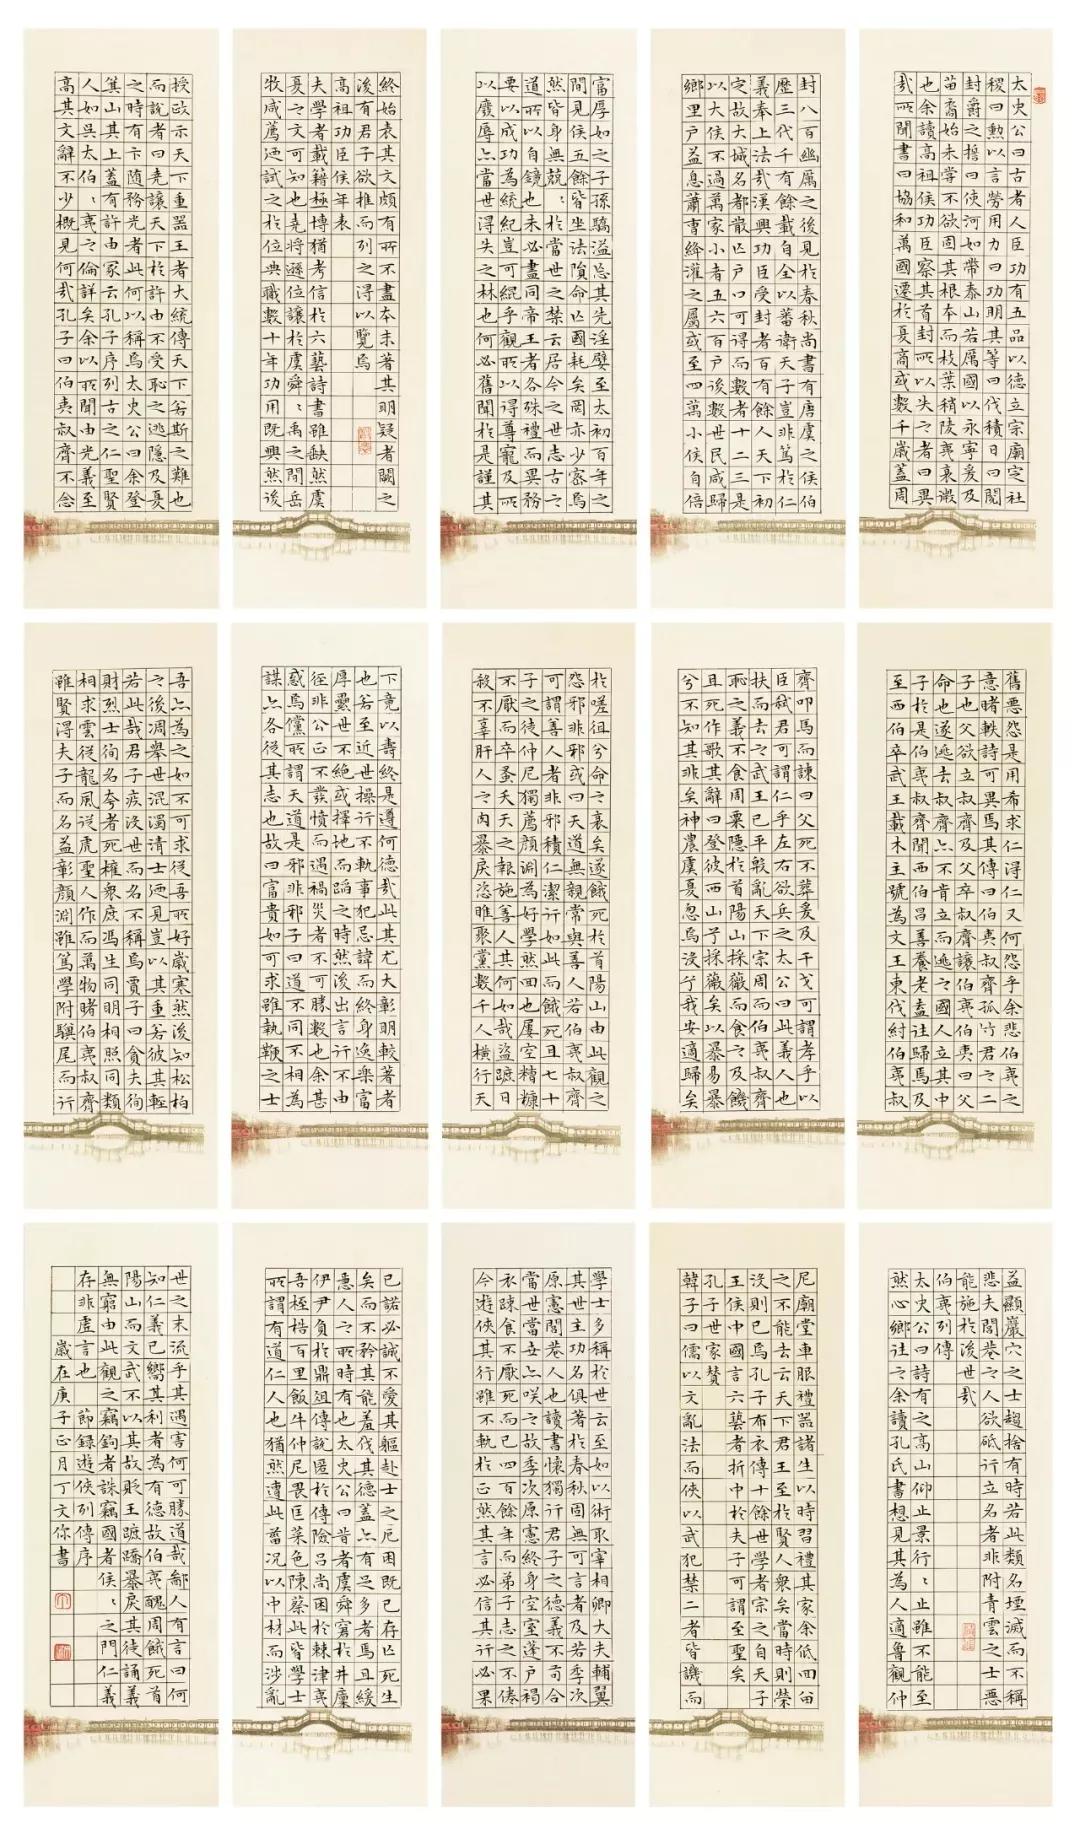 太史公曰古者人臣功有五品以德立宗廟定社
稷曰勲以言勞用力曰功明其等曰伐積日曰閱
封爵之誓曰使河如帶泰山若厲國以永寧爰及
苗裔始未嘗不欲固其根本而枝葉稍陵夷衰微
也余讀高祖侯功臣察其首封所以失之者曰異
哉所聞書曰協和萬國遷於夏商或數千歲蓋周
封八百幽厲之後見於春秋尚書有唐虞之侯伯
歷三代千有餘載自全以蕃衛天子豈非篤於仁
義奉上法哉漢興功臣受封者百有餘人天下初
定故大城名都散亡戶口可得而數者十二三是
以大侯不過萬家小者五六百戶後數世民咸歸
鄉里戶益息蕭曹絳灌之屬或至四萬小侯自倍
富厚如之子孫驕溢忘其先淫嬖至太初百年之
間見侯五餘皆坐法隕命亡國耗矣罔亦少密焉
然皆身無兢〻於當世之禁云居今之世志古之
道所以自鏡也未必盡同帝王者各殊禮而異務
要以成功為統紀豈可緄乎觀所以得尊寵及所
以廢辱亦當世得失之林也何必舊聞於是謹其
終始表其文頗有所不盡本末著其明疑者闕之
後有君子欲推而列之得以覽焉
高祖功臣侯年表
夫學者載籍極博猶考信於六藝詩書雖缺然虞
夏之文可知也堯將遜位讓於虞舜〻禹之間岳
牧咸薦迺試之於位典職數十年功用既興然後
授政示天下重器王者大統傳天下若斯之難也
而說者曰堯讓天下於許由不受恥之逃隱及夏
之時有卞隨務光者此何以稱焉太史公曰余登
箕山其上蓋有許由冢云孔子序列古之仁聖賢
人如吳太伯〻夷之倫詳矣余以所聞由光義至
高其文辭不少概見何哉孔子曰伯夷叔齊不念
舊惡怨是用希求仁得仁又何怨乎余悲伯夷之
意睹軼詩可異焉其傳曰伯夷叔齊孤竹君之二
子也父欲立叔齊及父卒叔齊讓伯夷伯夷曰父
命也遂逃去叔齊亦不肯立而逃之國人立其中
子於是伯夷叔齊聞西伯昌善養老盍往歸焉及
至西伯卒武王載木主號為文王東伐紂伯夷叔
齊叩馬而諫曰父死不葬爰及干戈可謂孝乎以
臣弒君可謂仁乎左右欲兵之太公曰此義人也
扶而去之武王已平殷亂天下宗周而伯夷叔齊
恥之義不食周粟隱於首陽山採薇而食之及餓
且死作歌其辭曰登彼西山兮採薇矣以暴易暴
兮不知其非矣神農虞夏忽焉沒兮我安適歸矣
於嗟徂兮命之衰矣遂餓死於首陽山由此觀之
怨邪非邪或曰天道無親常與善人若伯夷叔齊
可謂善人者非邪積仁潔行如此而餓死且七十
子之徒仲尼獨薦顏淵為好學然回也屢空糟糠
不厭而卒蚤夭天之報施善人其何如哉盜蹠日
殺不辜肝人之肉暴戾恣睢聚黨數千人橫行天
下竟以壽終是遵何德哉此其尤大彰明較著者
也若至近世操行不軌事犯忌諱而終身逸樂富
厚纍世不絕或擇地而蹈之時然後出言行不由
徑非公正不發憤而遇禍災者不可勝數也余甚
惑焉儻所謂天道是邪非邪子曰道不同不相為
謀亦各從其志也故曰富貴如可求雖執鞭之士
吾亦為之如不可求從吾所好歲寒然後知松柏
之後凋舉世混濁清士迺見豈以其重若彼其輕
若此哉君子疾沒世而名不稱焉賈子曰貪夫徇
財烈士徇名夸者死權衆庶馮生同明相照同類
相求雲從龍風從虎聖人作而萬物睹伯夷叔齊
雖賢得夫子而名益彰顏淵雖篤學附驥尾而行
益顯巖穴之士趨捨有時若此類名堙滅而不稱
悲夫閭巷之人欲砥行立名者非附青雲之士惡
能施於後世哉
伯夷列傳
太史公曰詩有之高山仰止景行〻止雖不能至
然心鄉往之余讀孔氏書想見其為人適魯觀仲
尼廟堂車服禮器諸生以時習禮其家余低回留
之不能去云天下君王至於賢人衆矣當時則榮
沒則已焉孔子布衣傳十餘世學者宗之自天子
王侯中國言六藝者折中於夫子可謂至聖矣
孔子世家贊
韓子曰儒以文亂法而俠以武犯禁二者皆譏而
學士多稱於世云至如以術取宰相卿大夫輔翼
其世主功名俱著於春秋固無可言者及若季次
原憲閭巷人也讀書懷獨行君子之德義不苟合
當世當世亦咲之故季次原憲終身空室蓬戶褐
衣疎食不厭死而已四百餘年而弟子志之不倦
今遊俠其行雖不軌於正然其言必信其行必果
已諾必誠不愛其軀赴士之厄困既已存亡死生
矣而不矜其能羞伐其德蓋亦有足多者焉且緩
急人之所時有也太史公曰昔者虞舜窘於井廩
伊尹負於鼎俎傳說匿於傳險呂尚困於棘津夷
吾桎梏百里飯牛仲尼畏匡菜色陳蔡此皆學士
所謂有道仁人也猶然遭此菑況以中材而涉亂
世之末流乎其遇害何可勝道哉鄙人有言曰何
知仁義已嚮其利者為有德故伯夷醜周餓死首
陽山而文武不以其故貶王蹠蹻暴戾其徒誦義
無窮由此觀之竊鉤者誅竊國者侯〻之門仁義
存非虛言也 節錄遊俠列傳序
歲在庚子正月丁文你書